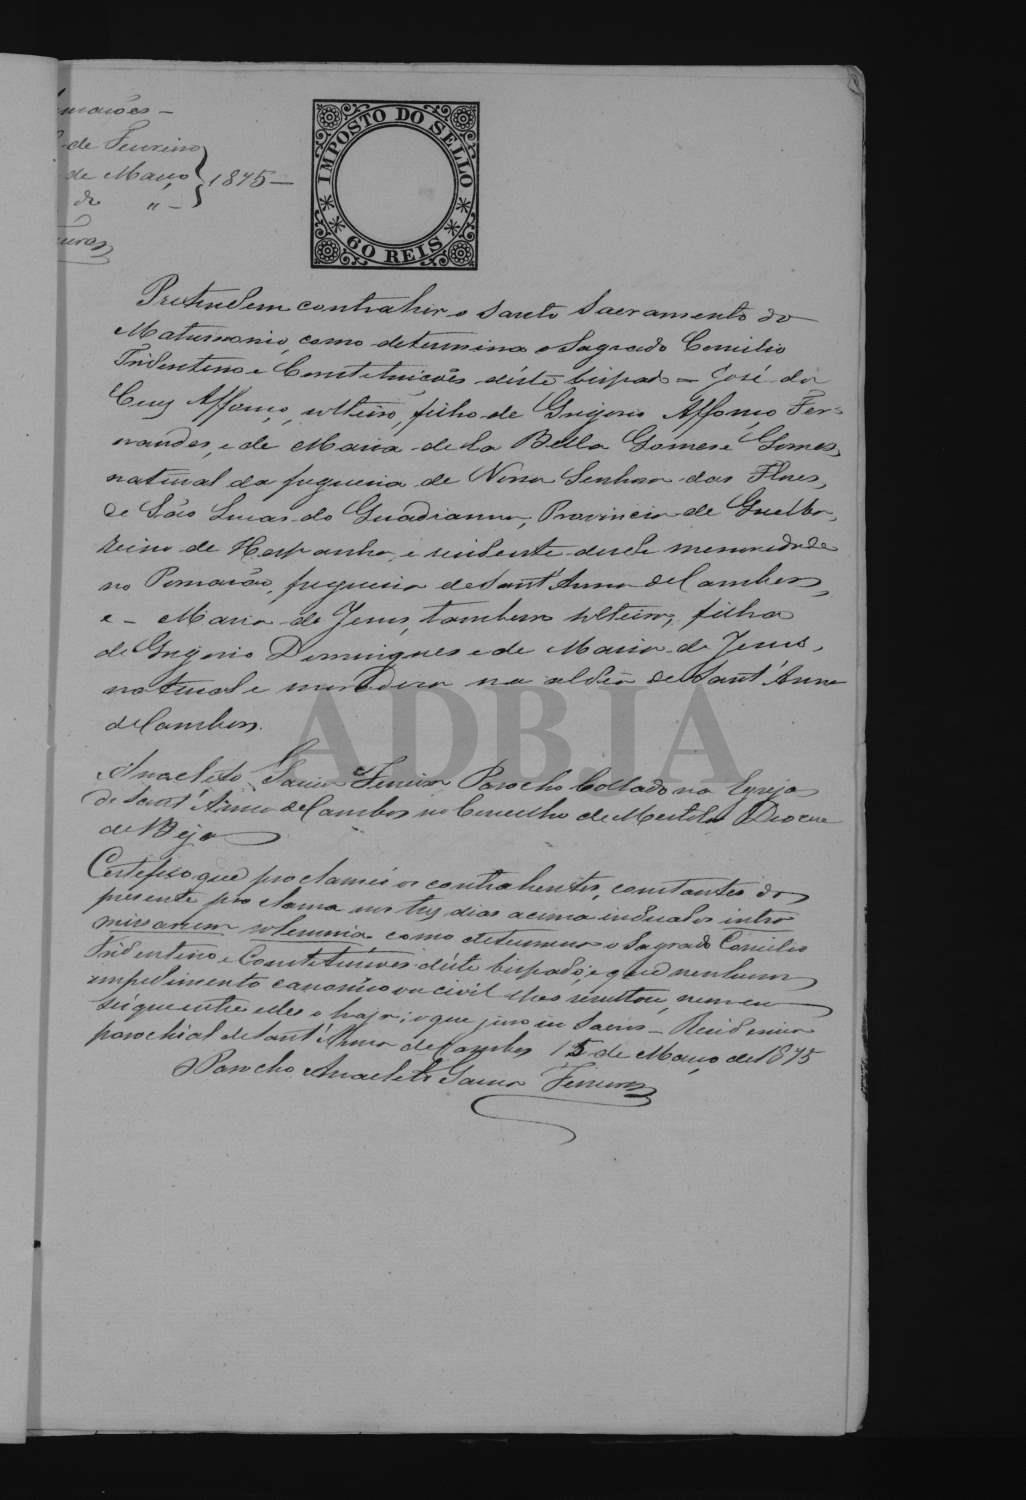 de Fevereiro
de Março } 1875 —
do " —
IMPOSTO DO SELLO
60 REIS
Pretendem contrahir o Santo Sacramento do
Matrimonio, como determina o Sagrado Concilio
Tridentino e Constituicoẽs déste bispado = José da
Cruz Affonço, solteiro, filho de Grigorio Affonço Fer=
nandes, e de Maria de la Bella Gomes e Gomes,
natural da freguesia de Nossa Senhora das Flores,
de São Lucas do Guadianna, Provincia de Guelba,
Reino de Hespanha, e residente desde menoridade
no Pomarão, freguesia de Sant'Anna de Cambas,
e - Maria de Jesus, tambem solteira, filha
de Grigorio Domingues e de Maria de Jesus,
natural e moradora na aldêa de Sant'Anna
de Cambas.
ADBJA
Anacleto Garcia Ferreira Parocho Collado na Egreja
de Sant'Anna de Cambas no Concelho de Mertola Diocese
de Beja
Certefico que proclamei os contrahentes, constantes do
presente proclama nos tres dias acima indicados intra
missarum solemnia como determina o Sagrado Concilio
Tridentino e Constituicões déste bispado; e que nenhum
impedimento canonico ou civil lhes resultou, nem eu
sei que entre elles o haja; o que juro in Sacris — Residencia
parochial de Sant'Anna de Cambas 15 de Março de 1875
O Parocho Anacleto Garcia Ferreira